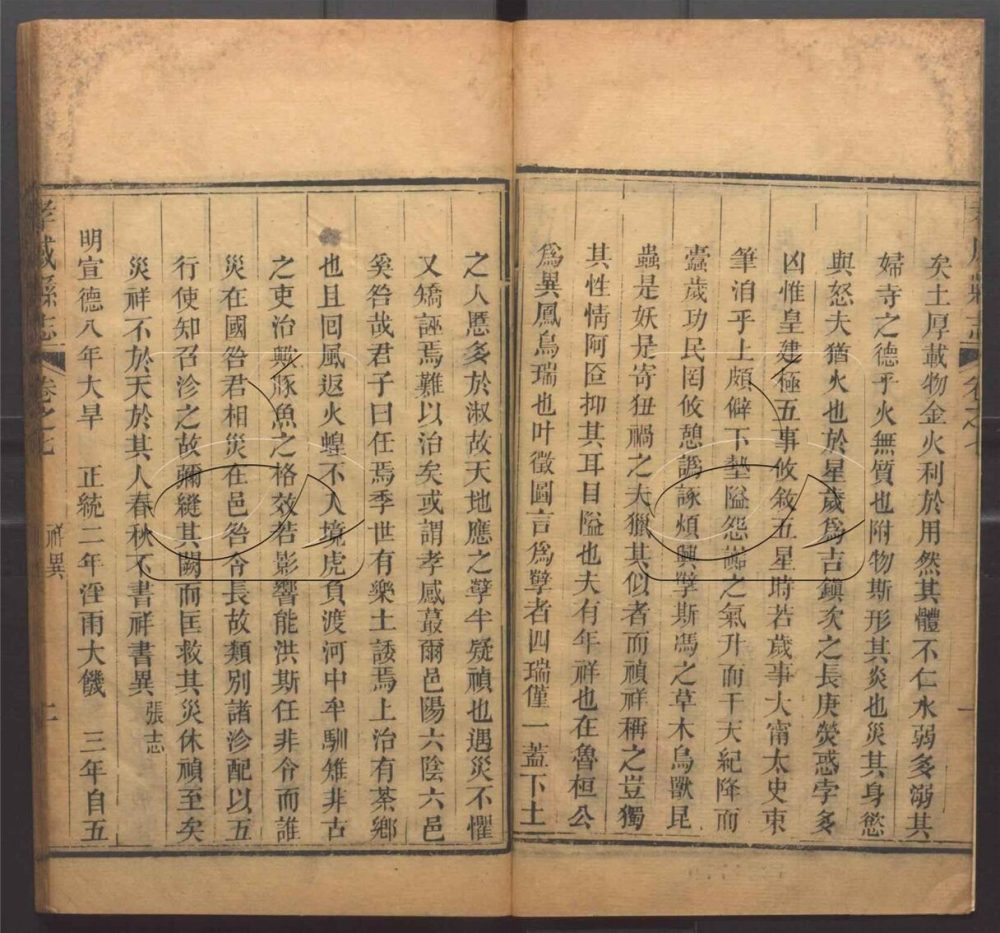 矣土厚載物金火利於用然其體不仁水弱多溺其
婦寺之德乎火無質也附物斯形其炎也災其身慾
與怒夫猶火也於星歲爲吉鎭次之長庚熒惑孛多
凶惟皇建極五事攸敘五星時若歲事大甯太史東
筆洎乎上頗僻下墊隘怨讟之氣升而干天紀降而
蠹歲功民罔攸憩譌諑煩興孽斯馮之草木鳥獸昆
蟲是妖是寄狃禍之夫獵其似者而禎祥稱之豈獨
其性情阿匼抑其耳目隘也夫有年祥也在魯桓公
爲異鳳鳥瑞也叶徵圖言爲孽者四瑞僅一蓋下土
之人慝多於淑故天地應之孽半疑禎也遇災不懼
又矯誣焉難以治矣或謂孝感蕞爾邑陽六陰六邑
奚咎哉君子曰任焉季世有樂土諉焉上治有荼鄉
也且囘風返火蝗不入境虎負渡河中牟馴雉非古
之吏治歟豚魚之格效若影響能洪斯任非令而誰
災在國咎君相災在邑咎令長故類別諸沴配以五
行使知召沴之故彌縫其闕而匡救其災休禎至矣
災祥不於天於其人春秋不書祥書異 張志
明宣德八年大旱 正統二年淫雨大饑 三年自五
孝感縣志 卷之七 祥異 二